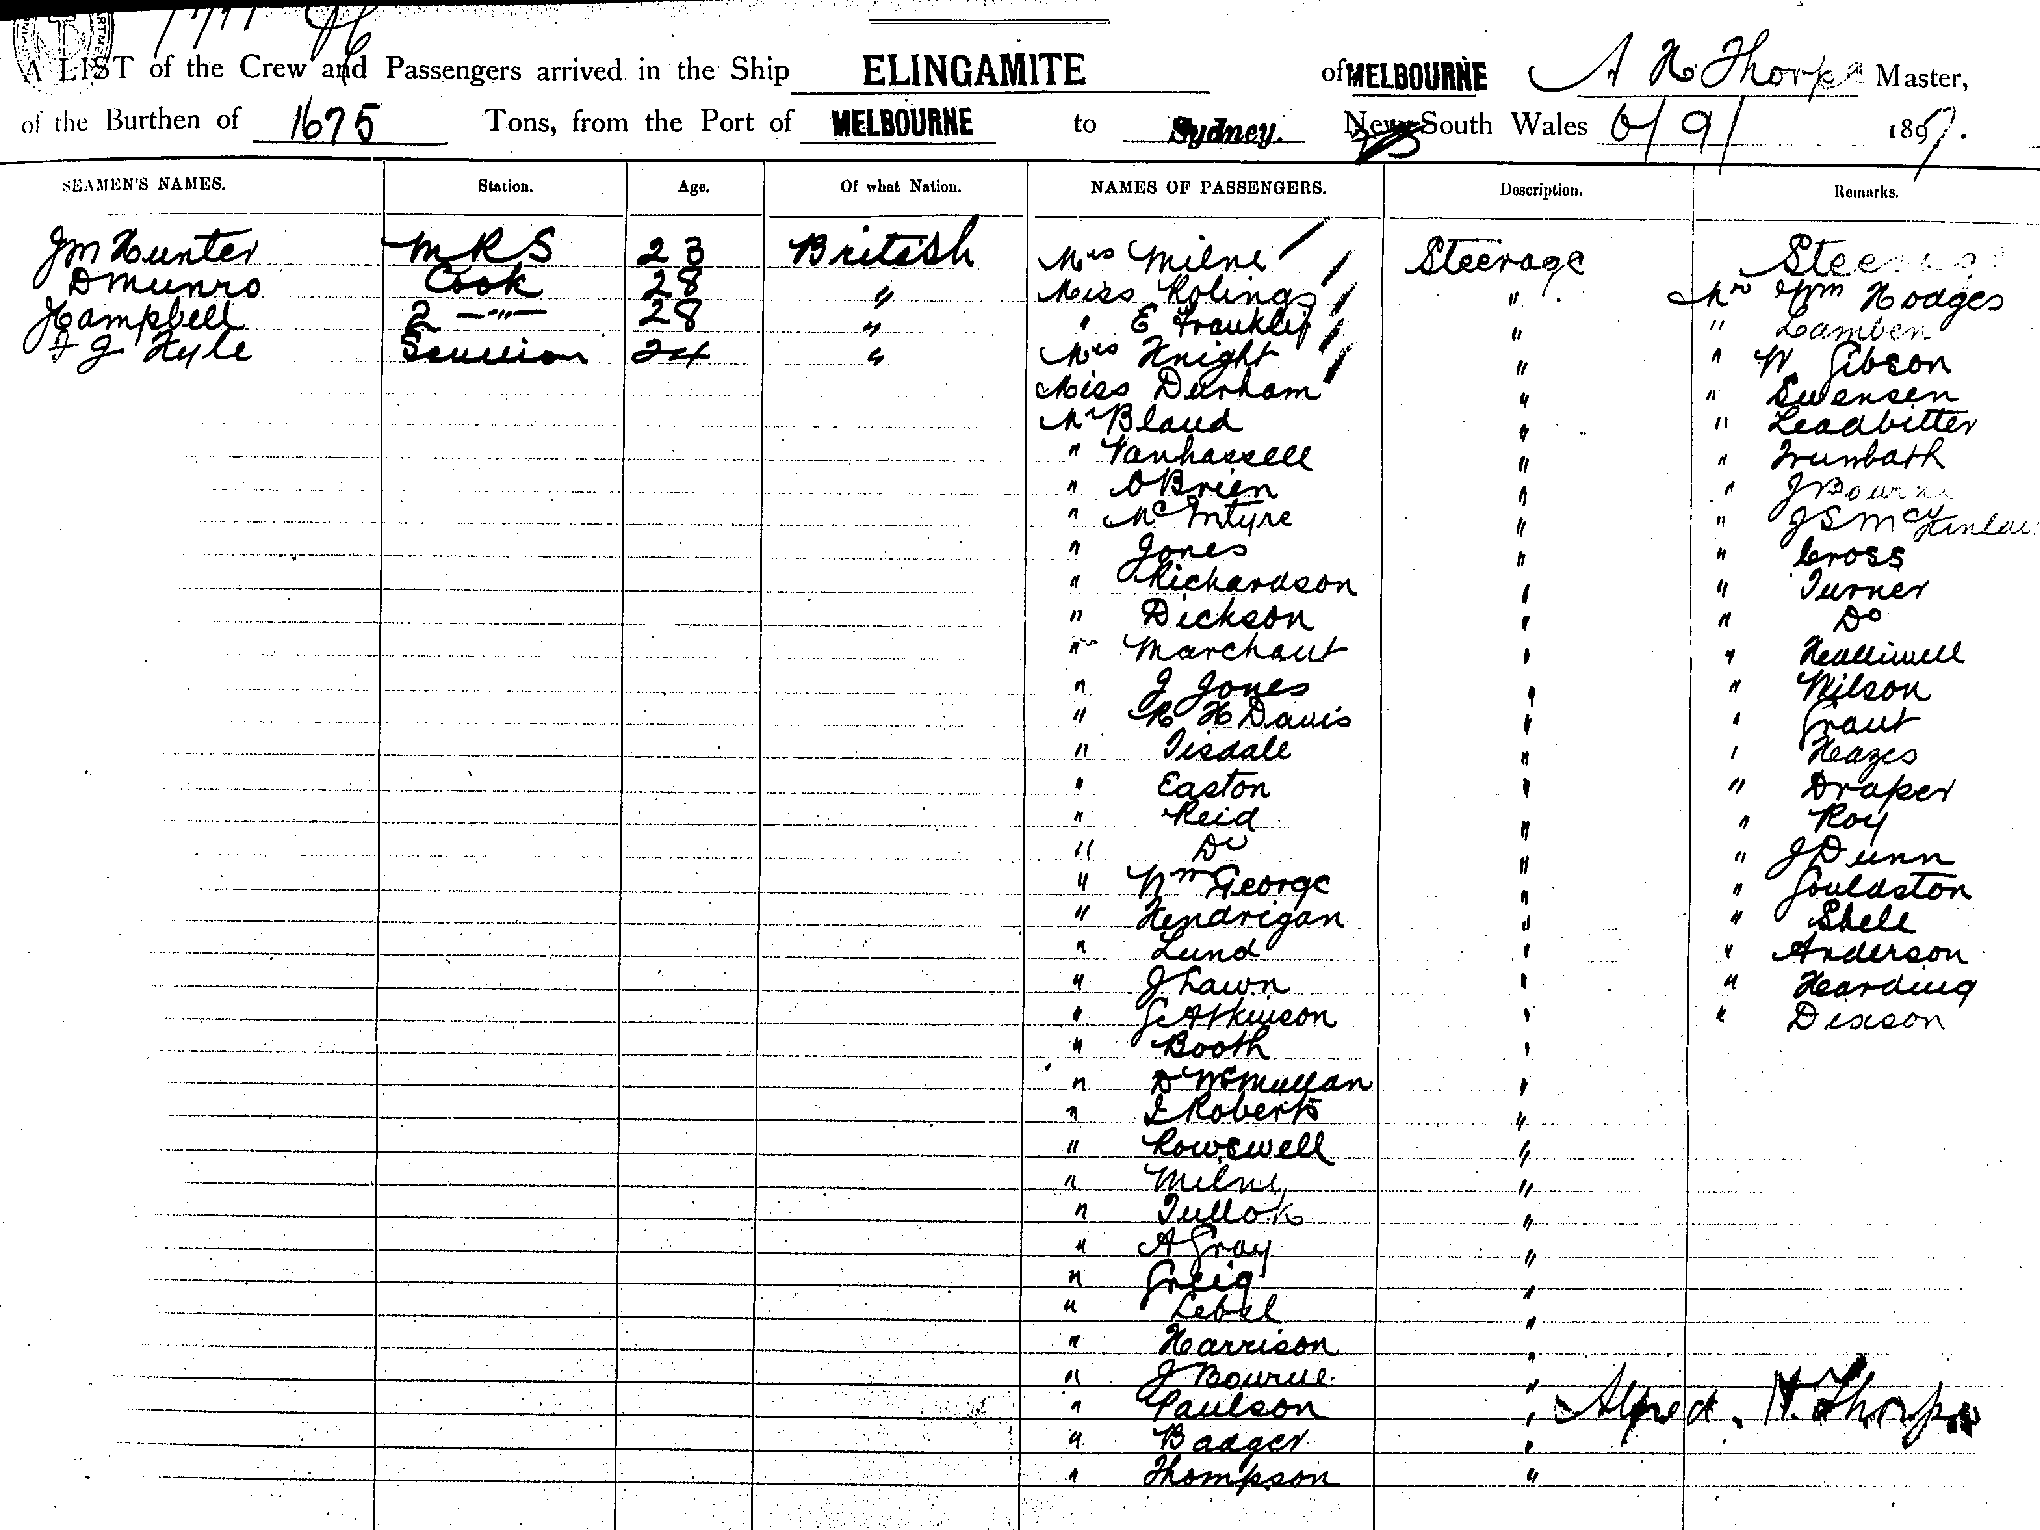 A LIST of the Crew and Passengers arrived in the Ship ELINGAMITE of MELBOURNE A H Thorpe Master,
of the Burthen of 1675 Tons, from the Port of MELBOURNE to Sydney. New South Wales 6/9/ 1897.
SEAMEN'S NAMES. Station. Age. Of what Nation. NAMES OF PASSENGERS. Description. Remarks.
J M Hunter M R S 23 British Mrs Milne Steerage Steerage
D Munro Cook 28 " Miss Rolings " Mr Wm Hodges
Campbell 2 —"— 28 " " E Franklin " " Lamben
F J Hyle Scullion 24 " Mrs Knight " " W Gibson
Miss Durham " " Swensen
Mr Bland " " Leadbitter
" Vanhassell " " Trumbath
" O'Brien " " J Bourne
" McIntyre " " J S McKinlay
" Jones " " Cross
" Richardson " " Turner
" Dickson " " Do
" Marchant " " Halliwell
" J Jones " " Wilson
" R H Davis " " Grant
" Tisdale " " Hazes
" Easton " " Draper
" Reid " " Roy
" Do " " J Dunn
" Wm George " " Gouldston
" Hendrigan " " Shell
" Lund " " Anderson
" J Lawn " " Harding
" G Atkinson " " Dixson
" Booth "
" D McMullan "
" E Roberts "
" Rowswell "
" Milne "
" Tullok "
" A Gray "
" Greig "
" Lebel "
" Harrison "
" J Bourne "
" Paulson " Alfred. H. Thorpe
" Badger "
" Thompson "